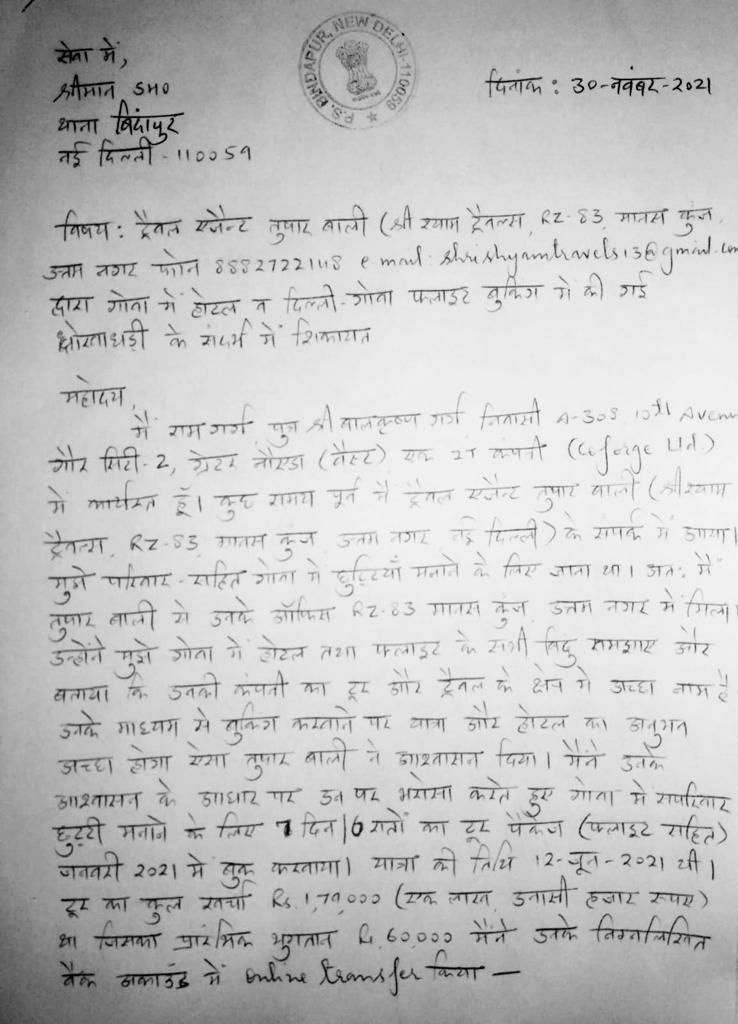 P.S. BINDAPUR, NEW DELHI-110059
सेवा में,
श्रीमान SHO
थाना बिंदापुर
नई दिल्ली-110059
दिनांक : 30-नवंबर-2021
विषय : ट्रैवल एजेन्ट तुषार बाली (श्री श्याम ट्रैवल्स, RZ-83, मानस कुंज,
उत्तम नगर फोन 8882722148 e-mail: shrishyamtravels13@gmail.com
द्वारा गोवा में होटल व दिल्ली-गोवा फ्लाइट बुकिंग में की गई
धोखाधड़ी के संदर्भ में शिकायत
महोदय,
मैं राम गर्ग पुत्र श्री बालकृष्ण गर्ग निवासी A-303 10th Avenu
गौर सिटी-2, ग्रेटर नौएडा (वैस्ट) एक IT कंपनी (Coforge Ltd.)
में कार्यरत हूँ। कुछ समय पूर्व मैं ट्रैवल एजेन्ट तुषार बाली (श्री श्याम
ट्रैवल्स, RZ-83, मानस कुंज, उत्तम नगर नई दिल्ली) के संपर्क में आया।
मुझे परिवार-सहित गोवा में छुट्टियाँ मनाने के लिए जाना था। अतः मैं
तुषार बाली से उनके ऑफिस RZ-83 मानस कुंज, उत्तम नगर में मिला।
उन्होंने मुझे गोवा में होटल तथा फ्लाइट के सभी बिंदु समझाए और
बताया कि उनकी कंपनी का टूर और ट्रैवल के क्षेत्र में अच्छा नाम है
उनके माध्यम से बुकिंग करवाने पर यात्रा और होटल का अनुभव
अच्छा होगा ऐसा तुषार बाली ने आश्वासन दिया। मैंने उनके
आश्वासन के आधार पर उन पर भरोसा करते हुए गोवा में सपरिवार
छुट्टी मनाने के लिए 7 दिन/6 रातों का टूर पैकेज (फ्लाइट सहित)
जनवरी 2021 में बुक करवाया। यात्रा की तिथि 12-जून-2021 थी।
टूर का कुल खर्चा Rs. 1,79,000 (एक लाख उनासी हजार रूपए)
था जिसका प्रारंभिक भुगतान Rs. 60,000 मैंने उनके निम्नलिखित
बैंक अकाउंट में online transfer किया —